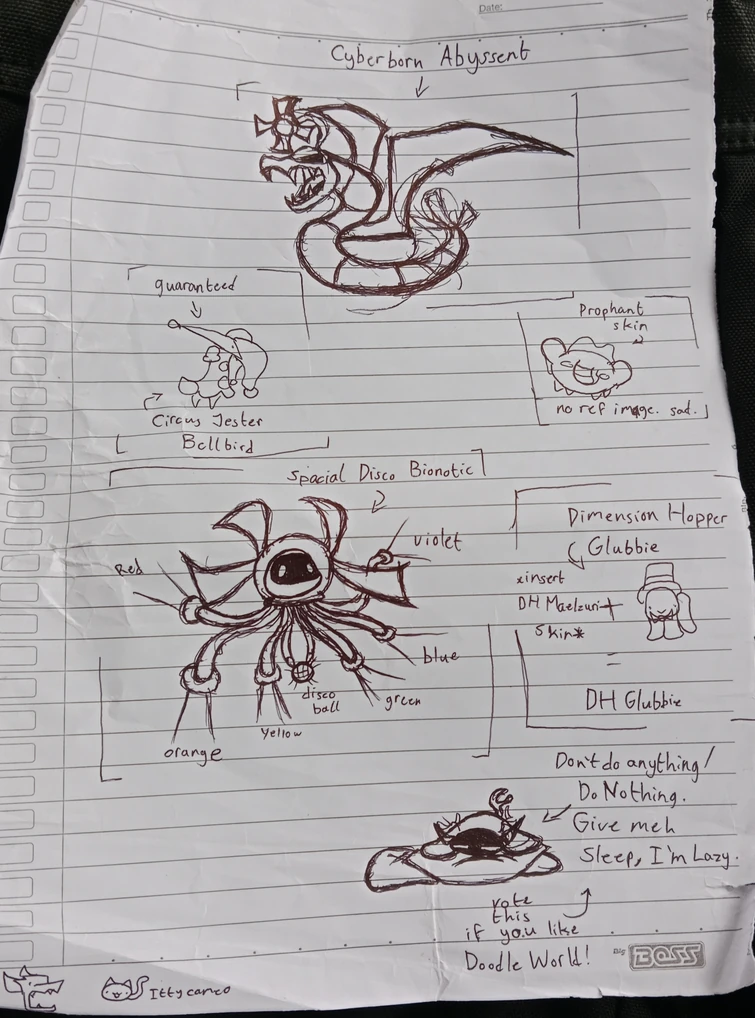 Date:
Cyberborn Abyssent
guaranteed
Prophant
skin
no ref image. sad.
Circus Jester
Bellbird
Spacial Disco Bionotic
violet
Red
blue
disco
ball
green
Yellow
orange
Dimension Hopper
Glubbie
*insert
DH Maelzuri +
Skin*
=
DH Glubbie
Don't do anything/
Do Nothing.
Give meh
Sleep, I'm Lazy.
vote
this
if you like
Doodle World!
Big BOSS